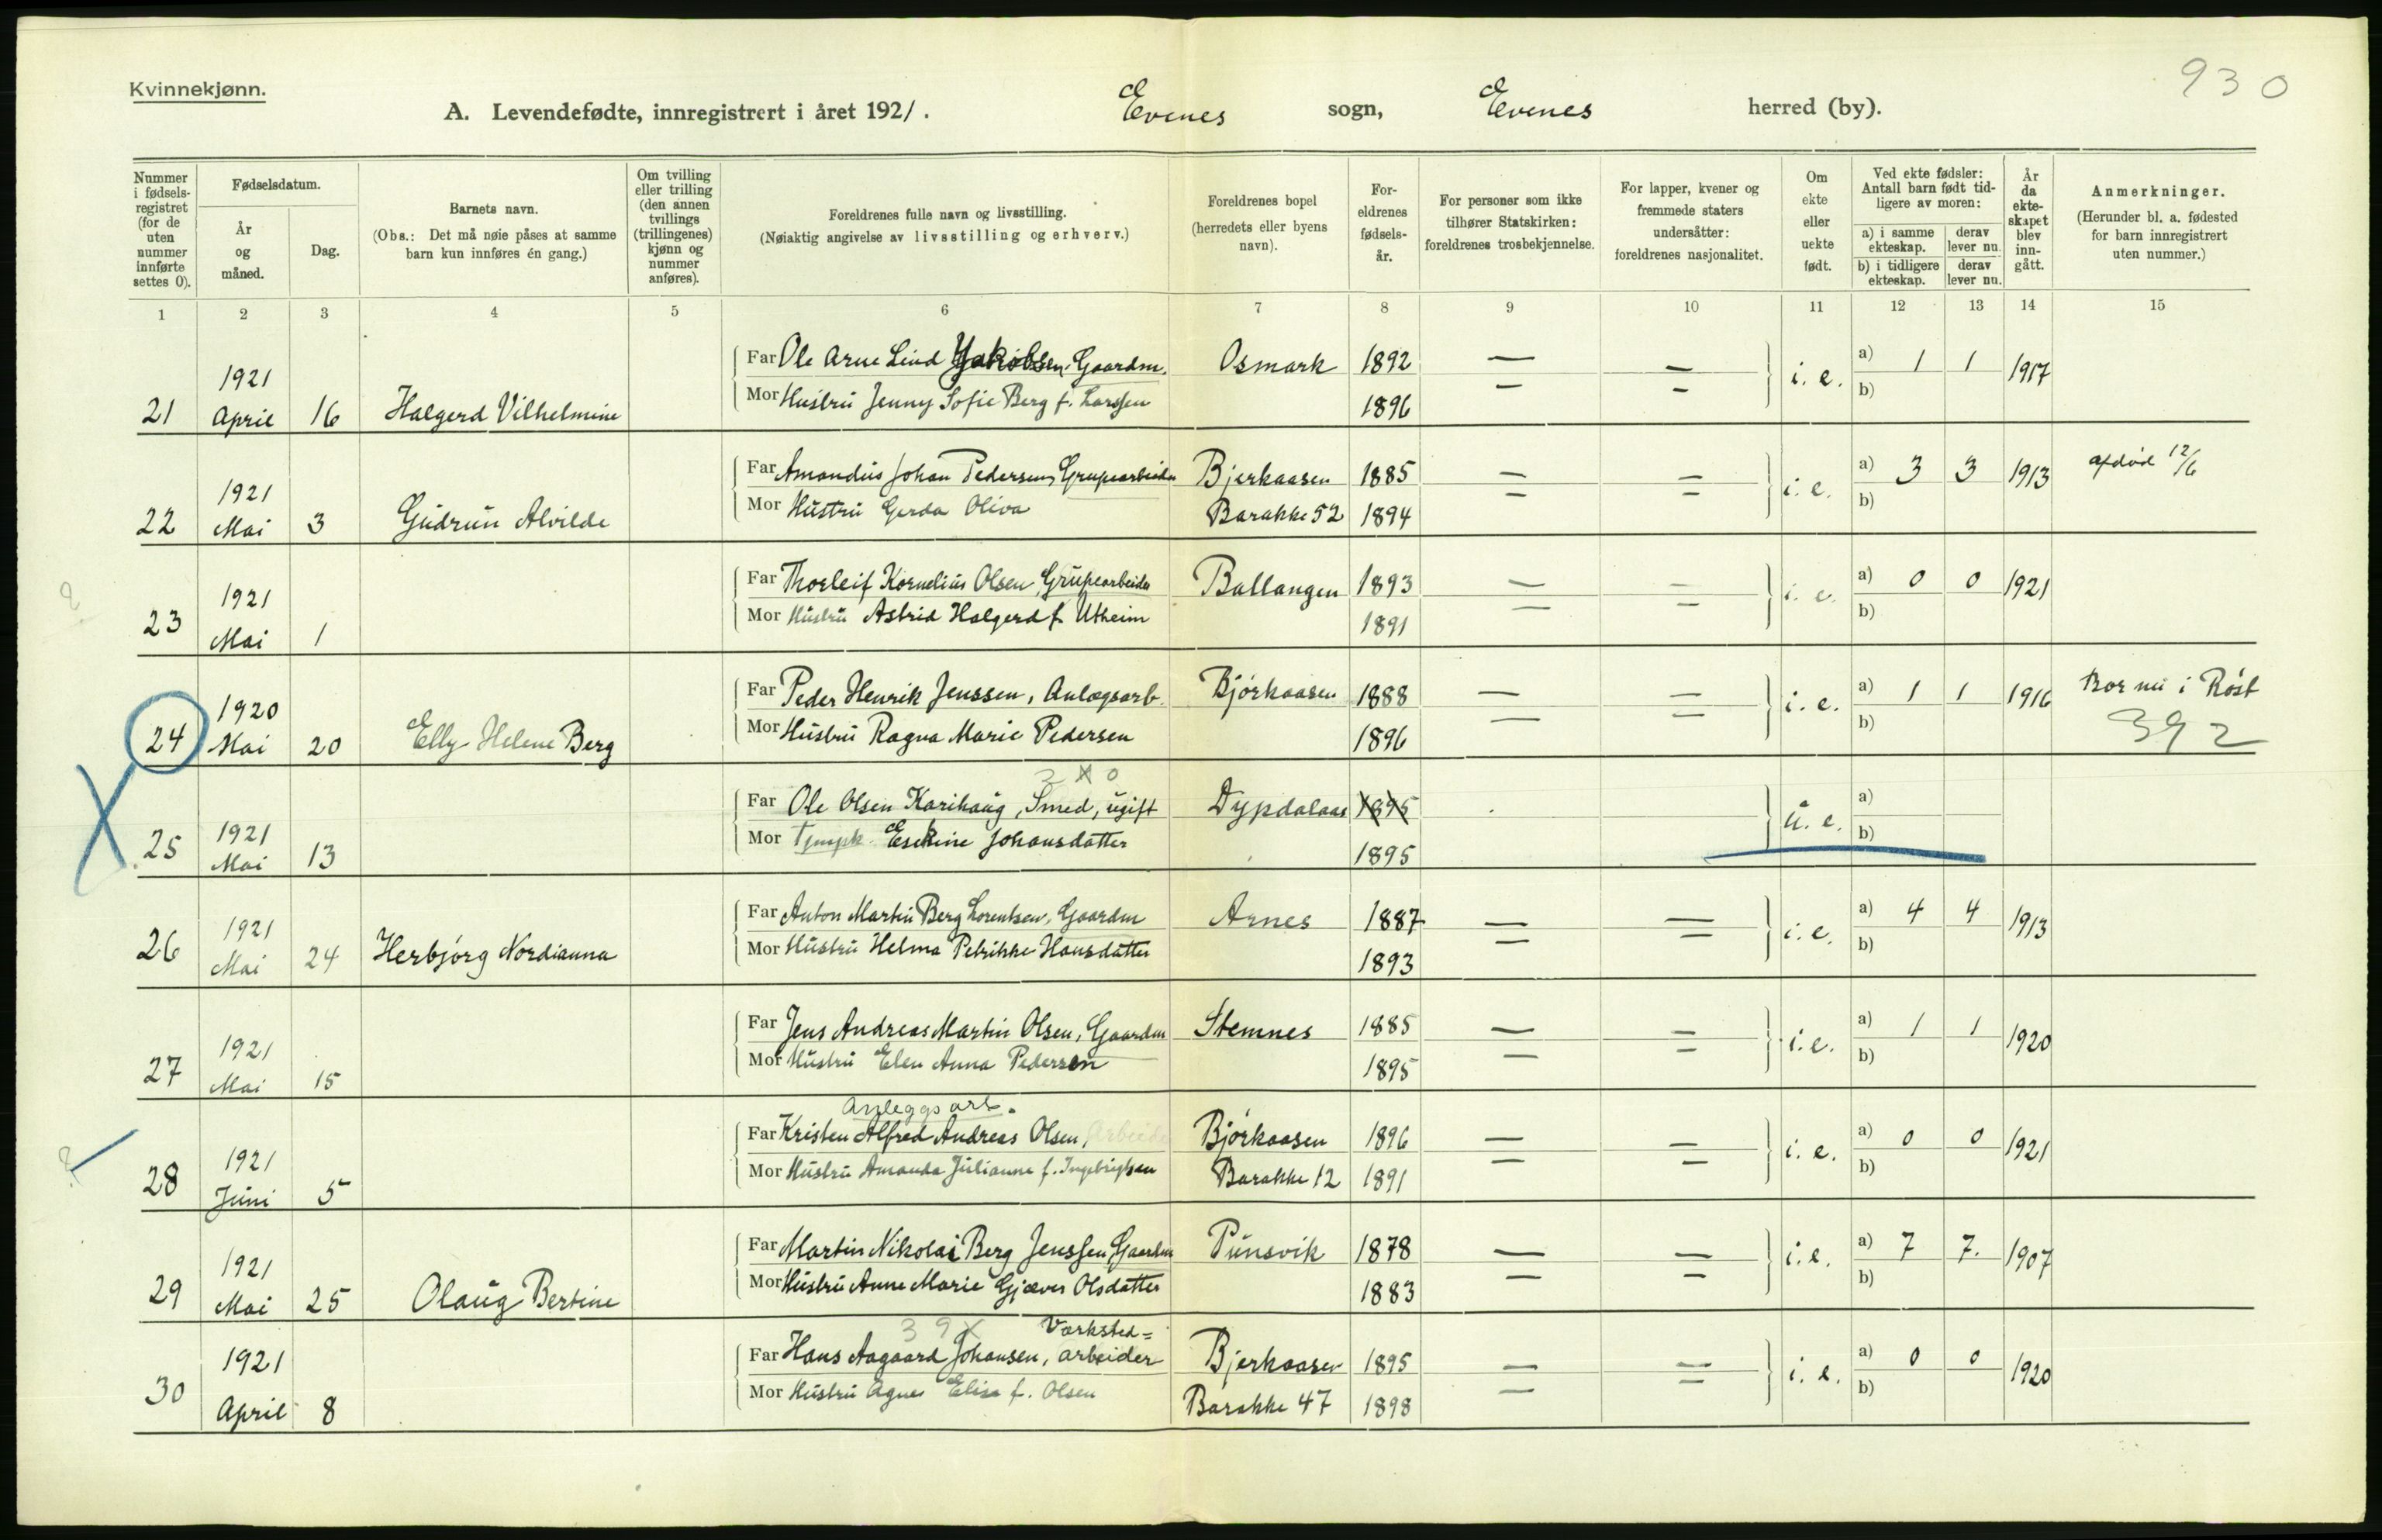 930
Kvinnekjønn.
A. Levendefødte, innregistrert i året 1921. Evenes sogn, Evenes herred (by).
Nummer i fødsels-registret (for de uten nummer innførte settes 0).
Fødselsdatum.
År og måned.
Dag.
Barnets navn.
(Obs.: Det må nøie påses at samme barn kun innføres én gang.)
Om tvilling eller trilling (den annen tvillings (trillingenes) kjønn og nummer anføres).
Foreldrenes fulle navn og livsstilling.
(Nøiaktig angivelse av livsstilling og erhverv.)
Foreldrenes bopel (herredets eller byens navn).
For-eldrenes fødsels-år.
For personer som ikke tilhører Statskirken: foreldrenes trosbekjennelse.
For lapper, kvener og fremmede staters undersåtter: foreldrenes nasjonalitet.
Om ekte eller uekte født.
Ved ekte fødsler: Antall barn født tid-ligere av moren:
a) i samme ekteskap. derav lever nu.
b) i tidligere ekteskap. derav lever nu.
År da ekte-skapet blev inn-gått.
Anmerkninger.
(Herunder bl. a. fødested for barn innregistrert uten nummer.)
1 2 3 4 5 6 7 8 9 10 11 12 13 14 15
21 1921 April 16 Halgerd Vilhelmine
Far Ole Arne Lind Jakobsen Gaardm. Osmark 1892 — — i. e. a) 1 1 1917
Mor Hustru Jenny Sofie Berg f. Larssen 1896 b)
22 1921 Mai 3 Gudrun Alvilde
Far Amandus Johan Pedersen, Grupearbeider Bjerkaasen 1885 i. e. a) 3 3 1913 afdød 12/6
Mor Hustru Gerda Oliva Barakke 52 1894 b)
23 1921 Mai 1
Far Thorleif Kornelius Olsen, Grupearbeider Ballangen 1893 i. e. a) 0 0 1921
Mor Hustru Astrid Halgerd f. Utheim 1891 b)
24 1920 Mai 20 Elly Helene Berg
Far Peder Henrik Jenssen, Anlægsarb. Bjørkaasen 1888 i. e. a) 1 1 1916 Bor nu i Røst
Mor Hustru Ragna Marie Pedersen 1896 b) 392
25 1921 Mai 13
Far Ole Olsen Karihaug, Smed, ugift Dypdalaas 1895 u. e. a)
Mor Esekine Johansdatter 1895 b)
26 1921 Mai 24 Herbjørg Nordianna
Far Anton Martin Berg Lorentsen, Gaardm Arnes 1887 i. e. a) 4 4 1913
Mor Hustru Helma Petrikke Hansdatter 1893 b)
27 1921 Mai 15
Far Jens Andreas Martin Olsen, Gaardm Stemnes 1885 i. e. a) 1 1 1920
Mor Hustru Elen Anna Pedersen 1895 b)
Anleggsarb.
28 1921 Juni 5
Far Kristen Alfred Andreas Olsen, Arbeider Bjørkaasen 1896 i. e. a) 0 0 1921
Mor Hustru Amanda Julianne f. Ingebrigtsen Barakke 12 1891 b)
29 1921 Mai 25 Olaug Bertine
Far Martin Nikolai Berg Jenssen Gaardm Punsvik 1878 i. e. a) 7 7. 1907
Mor Hustru Anne Marie Gjæver Olsdatter 1883 b)
39X Værksted=
30 1921 April 8
Far Hans Aagaard Johansen, arbeider Bjerkaasen 1895 i. e. a) 0 0 1920
Mor Hustru Agnes Elisa f. Olsen Barakke 47 1898 b)